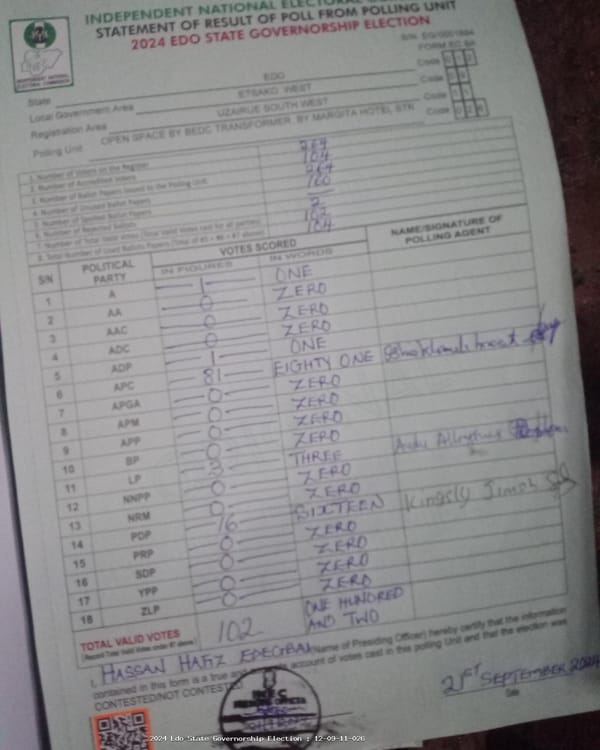 INDEPENDENT NATIONAL ELECTORAL
STATEMENT OF RESULT OF POLL FROM POLLING UNIT
2024 EDO STATE GOVERNORSHIP ELECTION
FORM EC 8A
INDEPENDENT NATIONAL ELECTORAL COMMISSION
State EDO Code 012
Local Government Area ETSAKO WEST Code 09
Registration Area UZAIRUE SOUTH WEST Code 11
Polling Unit OPEN SPACE BY BEDC TRANSFORMER BY MARGITA HOTEL STR Code 026
1. Number of Voters on the Register 264
2. Number of Accredited Voters 104
3. Number of Ballot Papers Issued to the Polling Unit 264
4. Number of Unused Ballot Papers 160
5. Number of Spoiled Ballot Papers —
6. Number of Rejected Ballots 2
7. Number of Total Valid Votes (Total Valid Votes cast for all parties) 102
8. Total Number of Used Ballot Papers (Total of #5 + #6 + #7 above) 104
S/N POLITICAL PARTY VOTES SCORED NAME/SIGNATURE OF POLLING AGENT
IN FIGURES IN WORDS
1 A 1 ONE
2 AA 0 ZERO
3 AAC 0 ZERO
4 ADC 0 ZERO
5 ADP 1 ONE
6 APC 81 EIGHTY ONE
7 APGA 0 ZERO
8 APM 0 ZERO
9 APP 0 ZERO
10 BP 0 ZERO
11 LP 3 THREE
12 NNPP 0 ZERO
13 NRM 0 ZERO
14 PDP 16 SIXTEEN Kingsly Jimoh
15 PRP 0 ZERO
16 SDP 0 ZERO
17 YPP 0 ZERO
18 ZLP 0 ZERO
TOTAL VALID VOTES 102 ONE HUNDRED AND TWO
I, HASSAN HAFIZ (Name of Presiding Officer) hereby certify that the information
contained in this form is a true and account of votes cast in this polling Unit and that the election was
CONTESTED/NOT CONTESTED
21ST SEPTEMBER 2024
Date
2024 Edo State Governorship Election : 12-09-11-026